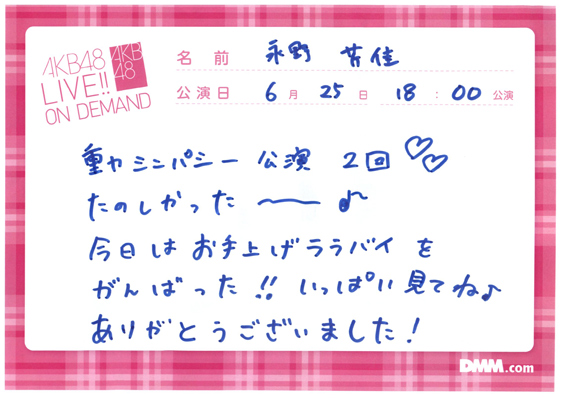 AKB48
LIVE!!
ON DEMAND
AKB
48
名前 永野 芹佳
公演日 6月25日 18:00公演
重力シンパシー公演 2回♡♡
たのしかった〜♪
今日はお手上げララバイを
がんばった!! いっぱい見てね♪
ありがとうございました!
DMM.com